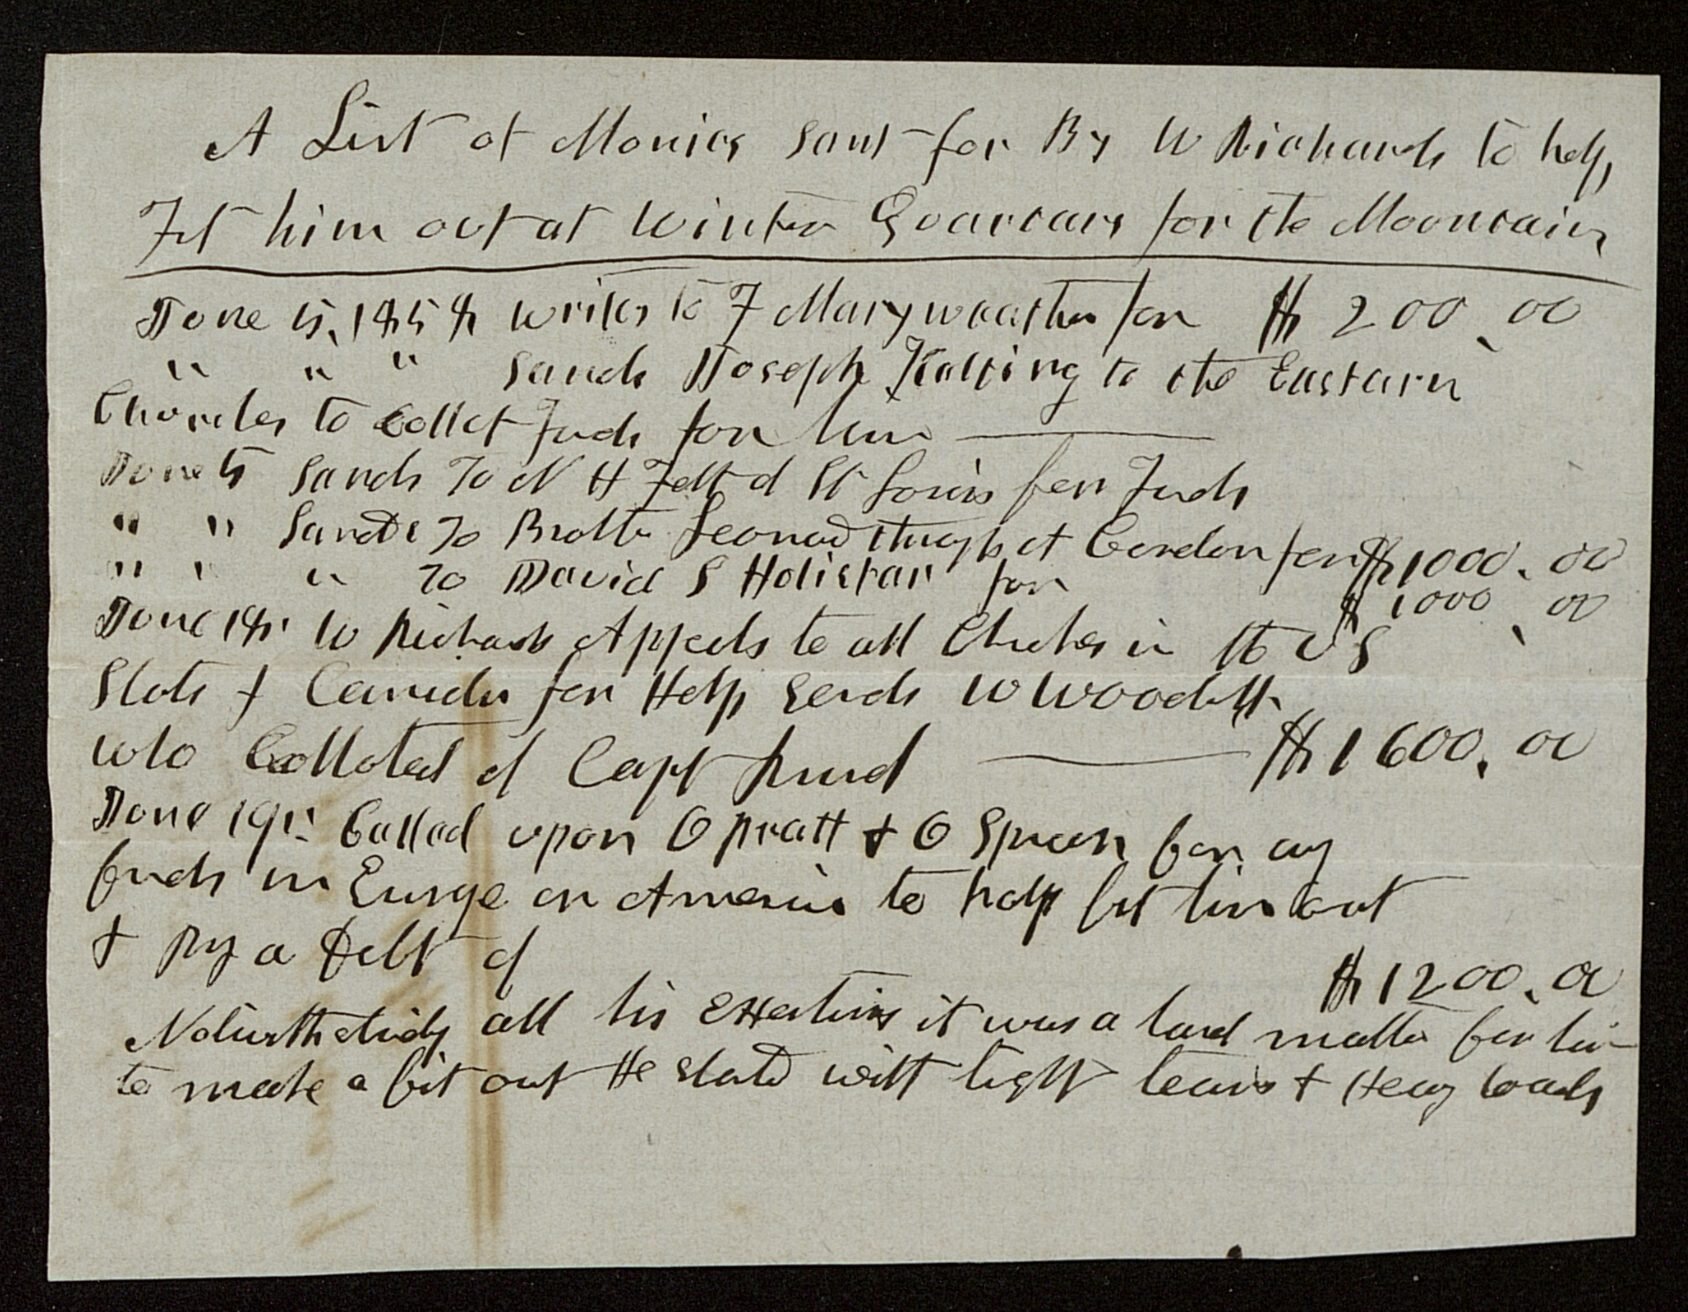 A List of Monies sent for By W Richards to help
Fit him out at Winter Quartars for the Mountain
June 15, 1848 writes to F Maryweather for $200.00
" " " Sends Joseph to the Eastarn
Churches to Collet Funds for him
June 15 Sends To N H Felt of St Louis for Funds
" " Sends To Brother Leonard at Camden for $1000.00
" " " To David S Holistar for $1000.00
June 18 W Richards Appeals to all Churches in the US
States & Canada for Help Sends W Woodruff
who Collated of Capt $1600.00
June 19th Called upon O Pratt & O Spencer for any
funds in Europe or America to help fit him out
& Pay a Debt of $1200.00
Notwithstanding all his Exertions it was a hard matter for him
to make a fit out He started with light teams & Heavy loads